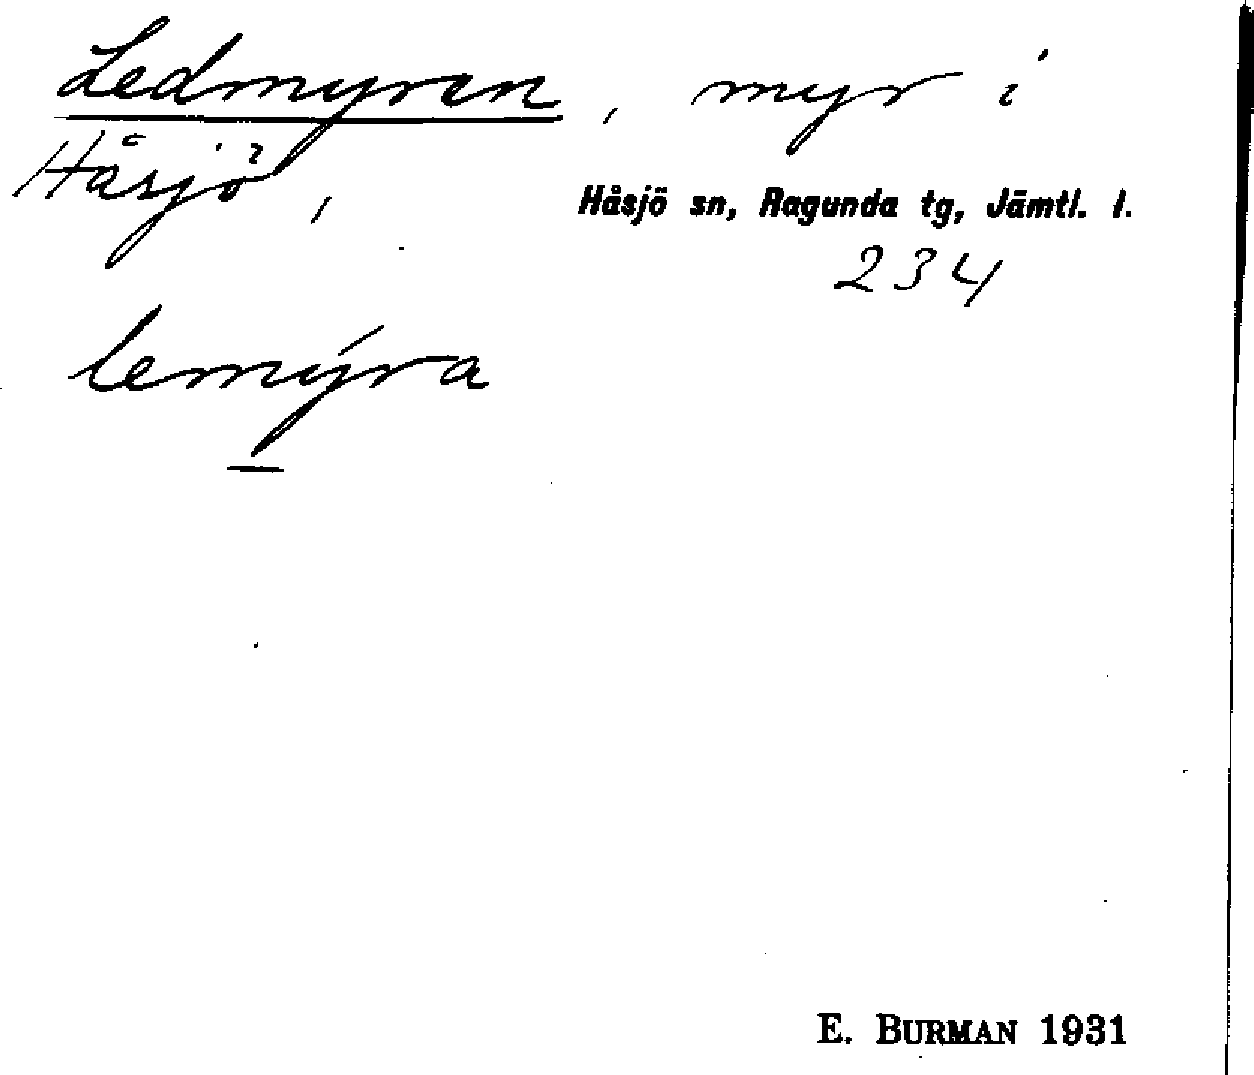 Ledmyren, myr i
Håsjö,
Håsjö sn, Ragunda tg, Jämtl. l.
234
lemýra
E. BURMAN 1931